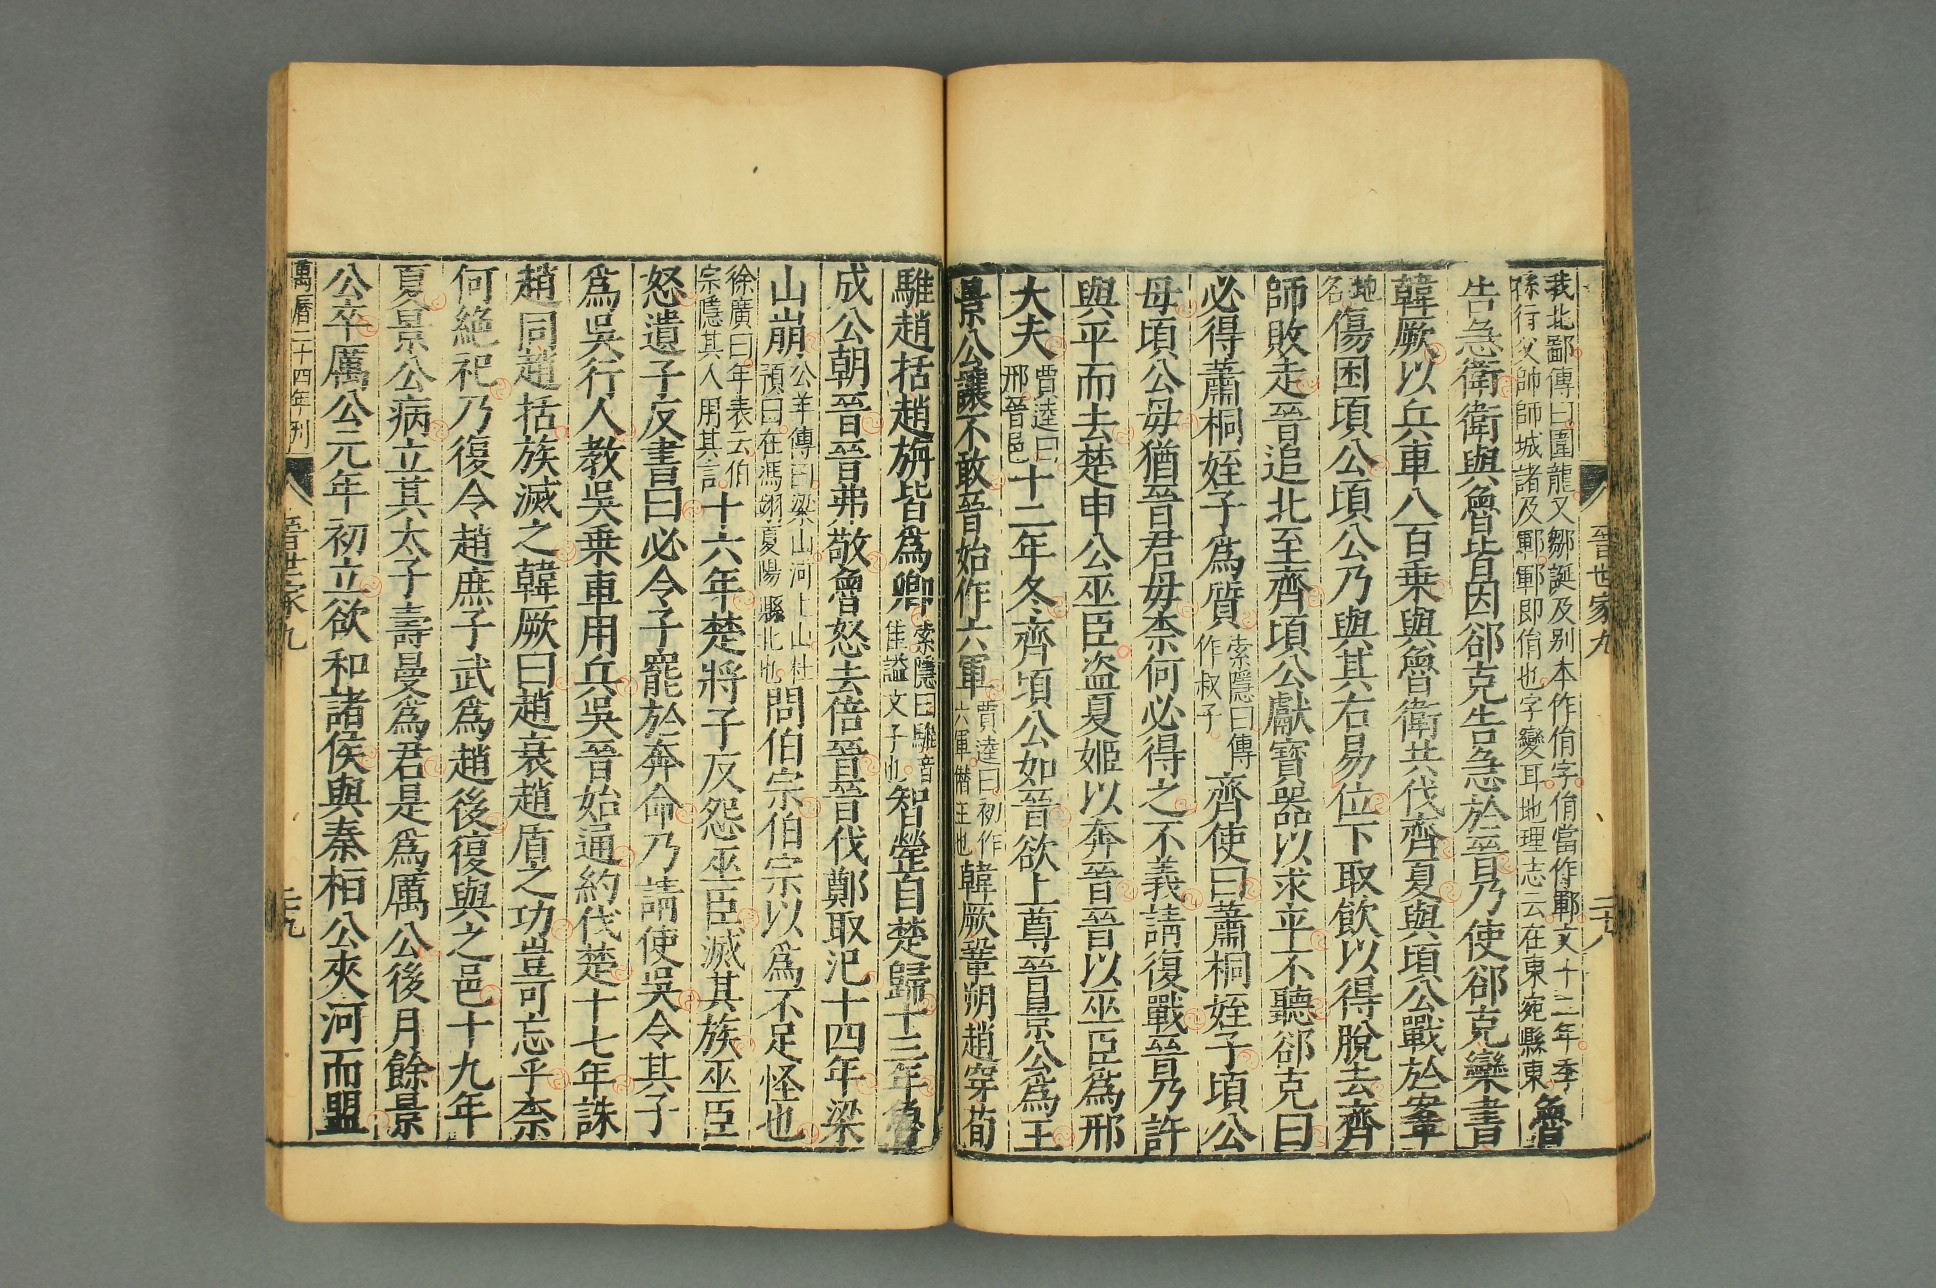 晉世家九
二十八
我北鄙傳曰圍龍又鄒誕及別本作俏字俏當作鄆文十二年季
孫行父帥師城諸及鄆鄆即俏也字變耳地理志云在東宛縣東
魯
告急衛衛與魯皆因郤克告急於晉晉乃使郤克欒書
韓厥以兵車八百乘與魯衛共伐齊夏與頃公戰於鞌
傷困頃公頃公乃與其右易位下取飲以得脫去齊
師敗走晉追北至齊頃公獻寶器以求平不聽郤克曰
必得蕭桐姪子為質
索隱曰傳
作叔子
齊使曰蕭桐姪子頃公
母頃公母猶晉君母柰何必得之不義請復戰晉乃許
與平而去楚申公巫臣盜夏姬以奔晉晉以巫臣為邢
大夫
賈逵曰
邢晉邑
十二年冬齊頃公如晉欲上尊晉景公為王
景公讓不敢晉始作六軍
賈逵曰初作
六軍僭王也
韓厥鞏朔趙穿荀
騅趙括趙旃皆為卿
索隱曰騅音
隹謚文子也
智罃自楚歸十三年魯
成公朝晉晉弗敬魯怒去倍晉晉伐鄭取氾十四年梁
山崩
公羊傳曰梁山河上山杜
預曰在馮翊夏陽縣北也
問伯宗伯宗以為不足怪也
徐廣曰年表云伯
宗隱其人用其言
十六年楚將子反怨巫臣滅其族巫臣
怒遺子反書曰必令子罷於奔命乃請使吳令其子
為吳行人教吳乘車用兵吳晉始通約伐楚十七年誅
趙同趙括族滅之韓厥曰趙衰趙盾之功豈可忘乎柰
何絕祀乃復令趙庶子武為趙後復與之邑十九年
夏景公病立其太子壽曼為君是為厲公後月餘景
公卒厲公元年初立欲和諸侯與秦桓公夾河而盟
萬曆二十四年刊
晉世家九
二十九